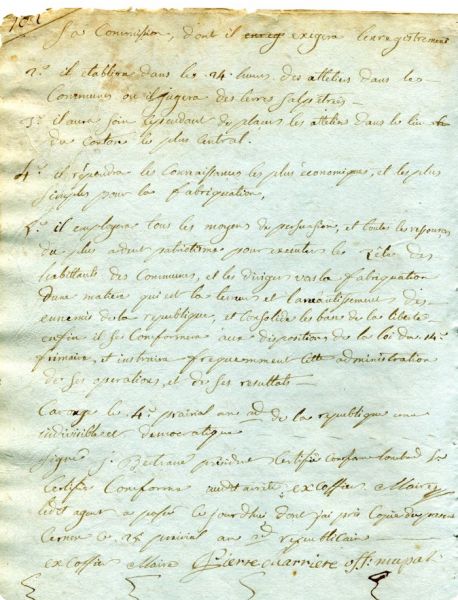 Sa Commission, dont il exigera lenregistrement
2.° il etablira dans les 24. heures des atteliers dans les
Communes ou il jugera des terres salpetrés —
3.° il aura soin cependant de placer les atteliers dans le lieu
du canton le plus Central.
4.° il répandra les Connaissances les plus économiques, et les plus
simples pour la fabriquation,
5.° il employera tous les moyens de persuasion, et toutes les ressources
du plus ardent patriotisme pour exciter les Zéle des
habittants des Communes, et les diriger vers la fabriquation
d'une matiere qui est la terreur et l'aneantissement des
ennemis de la republique, et consolide les bases de la liberté
enfin il se Conformera aux dispositions de la loi du 14.e
frimaire, et instruira frequemment cette administration
de ses operations, et de ses resultats —
le 4.e prairial an 2d de la republique une
indivisible et democratique
signé j. Bertrand président Certifié
Certifié Conforme audit arrité excoffier Maire
ledit agent a ce jourdhui dont j'ai pris Copie
ce 28 prairial an 2d republicain
excoffier Maire Pierre Carriere off. mupal.